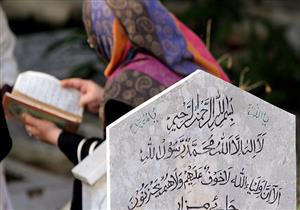 بسم الله الرحمن الرحيم
لا اله الا الله محمد رسول الله
الا ان اولياء الله لا خوف عليهم ولا هم يحزنون